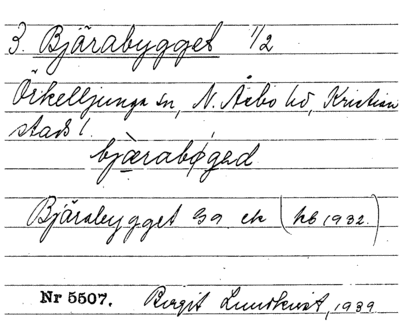 3. Bjärabygget 1/2
Örkelljunga sn, N. Åsbo hd, Kristian
stads l.
bjæraboged
Bjärabygget Ga ek (hb 1932.)
Nr 5507. Birgit Lundkvist, 1939